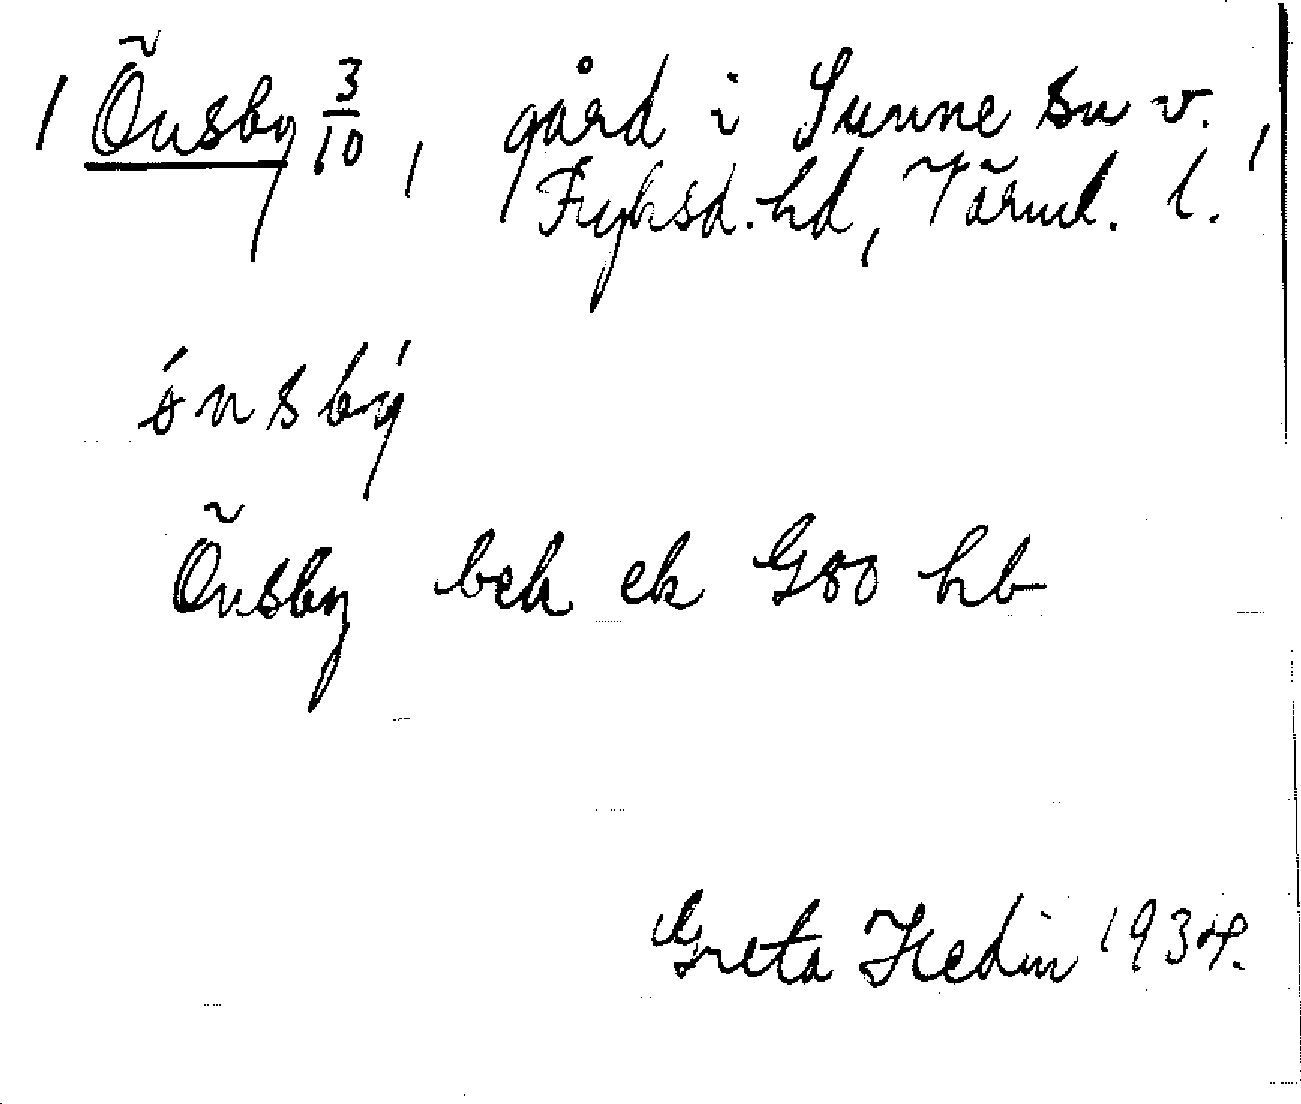 1 Önsby 3/10, gård i Sunne sn v.,
Fryksd. hd, Värml. l.
ǿnsbý
Önsby bek ek G80 hb
Greta Hedin 1934.